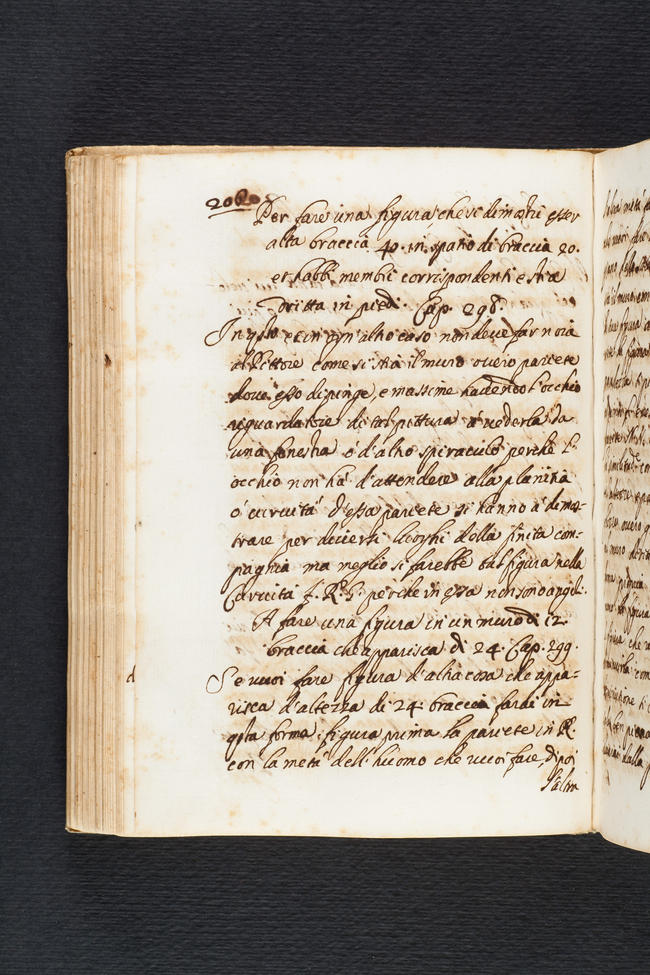 206
Per fare una figura che si dimostri esser
alta braccia 40. in spatio di braccia 20.
et habbi membri corrispondenti e stia
dritta in piedi. Cap. 298.
In qsto et in ogn'altro caso non deve far noia
al Pittore come si stia il muro overo parete
dove esso dipinge, e massime havendo l'occhio
riguardatore di tal pittura a vederla da
una fenestra ó d'altro spiraculo perche l'
occhio non há d'attendere alla planitia
ó curvitá d'essa parete si hanno a dimos=
trare per diversi luoghi della finita com=
pagnia ma meglio si farebbe tal figura nella
Curvitá f. R. G. perche in essa non sono angoli.
A fare una figura in un muro di 12.
braccia che apparisca di 24. Cap. 299.
Se vuoi fare figura d'altra cosa che appa=
risca d'altezza di 24. braccia farai in
qsta forma; figura prima la parete in R.
con la metá dell'huomo che vuoi fare, di poi
l'altra
d